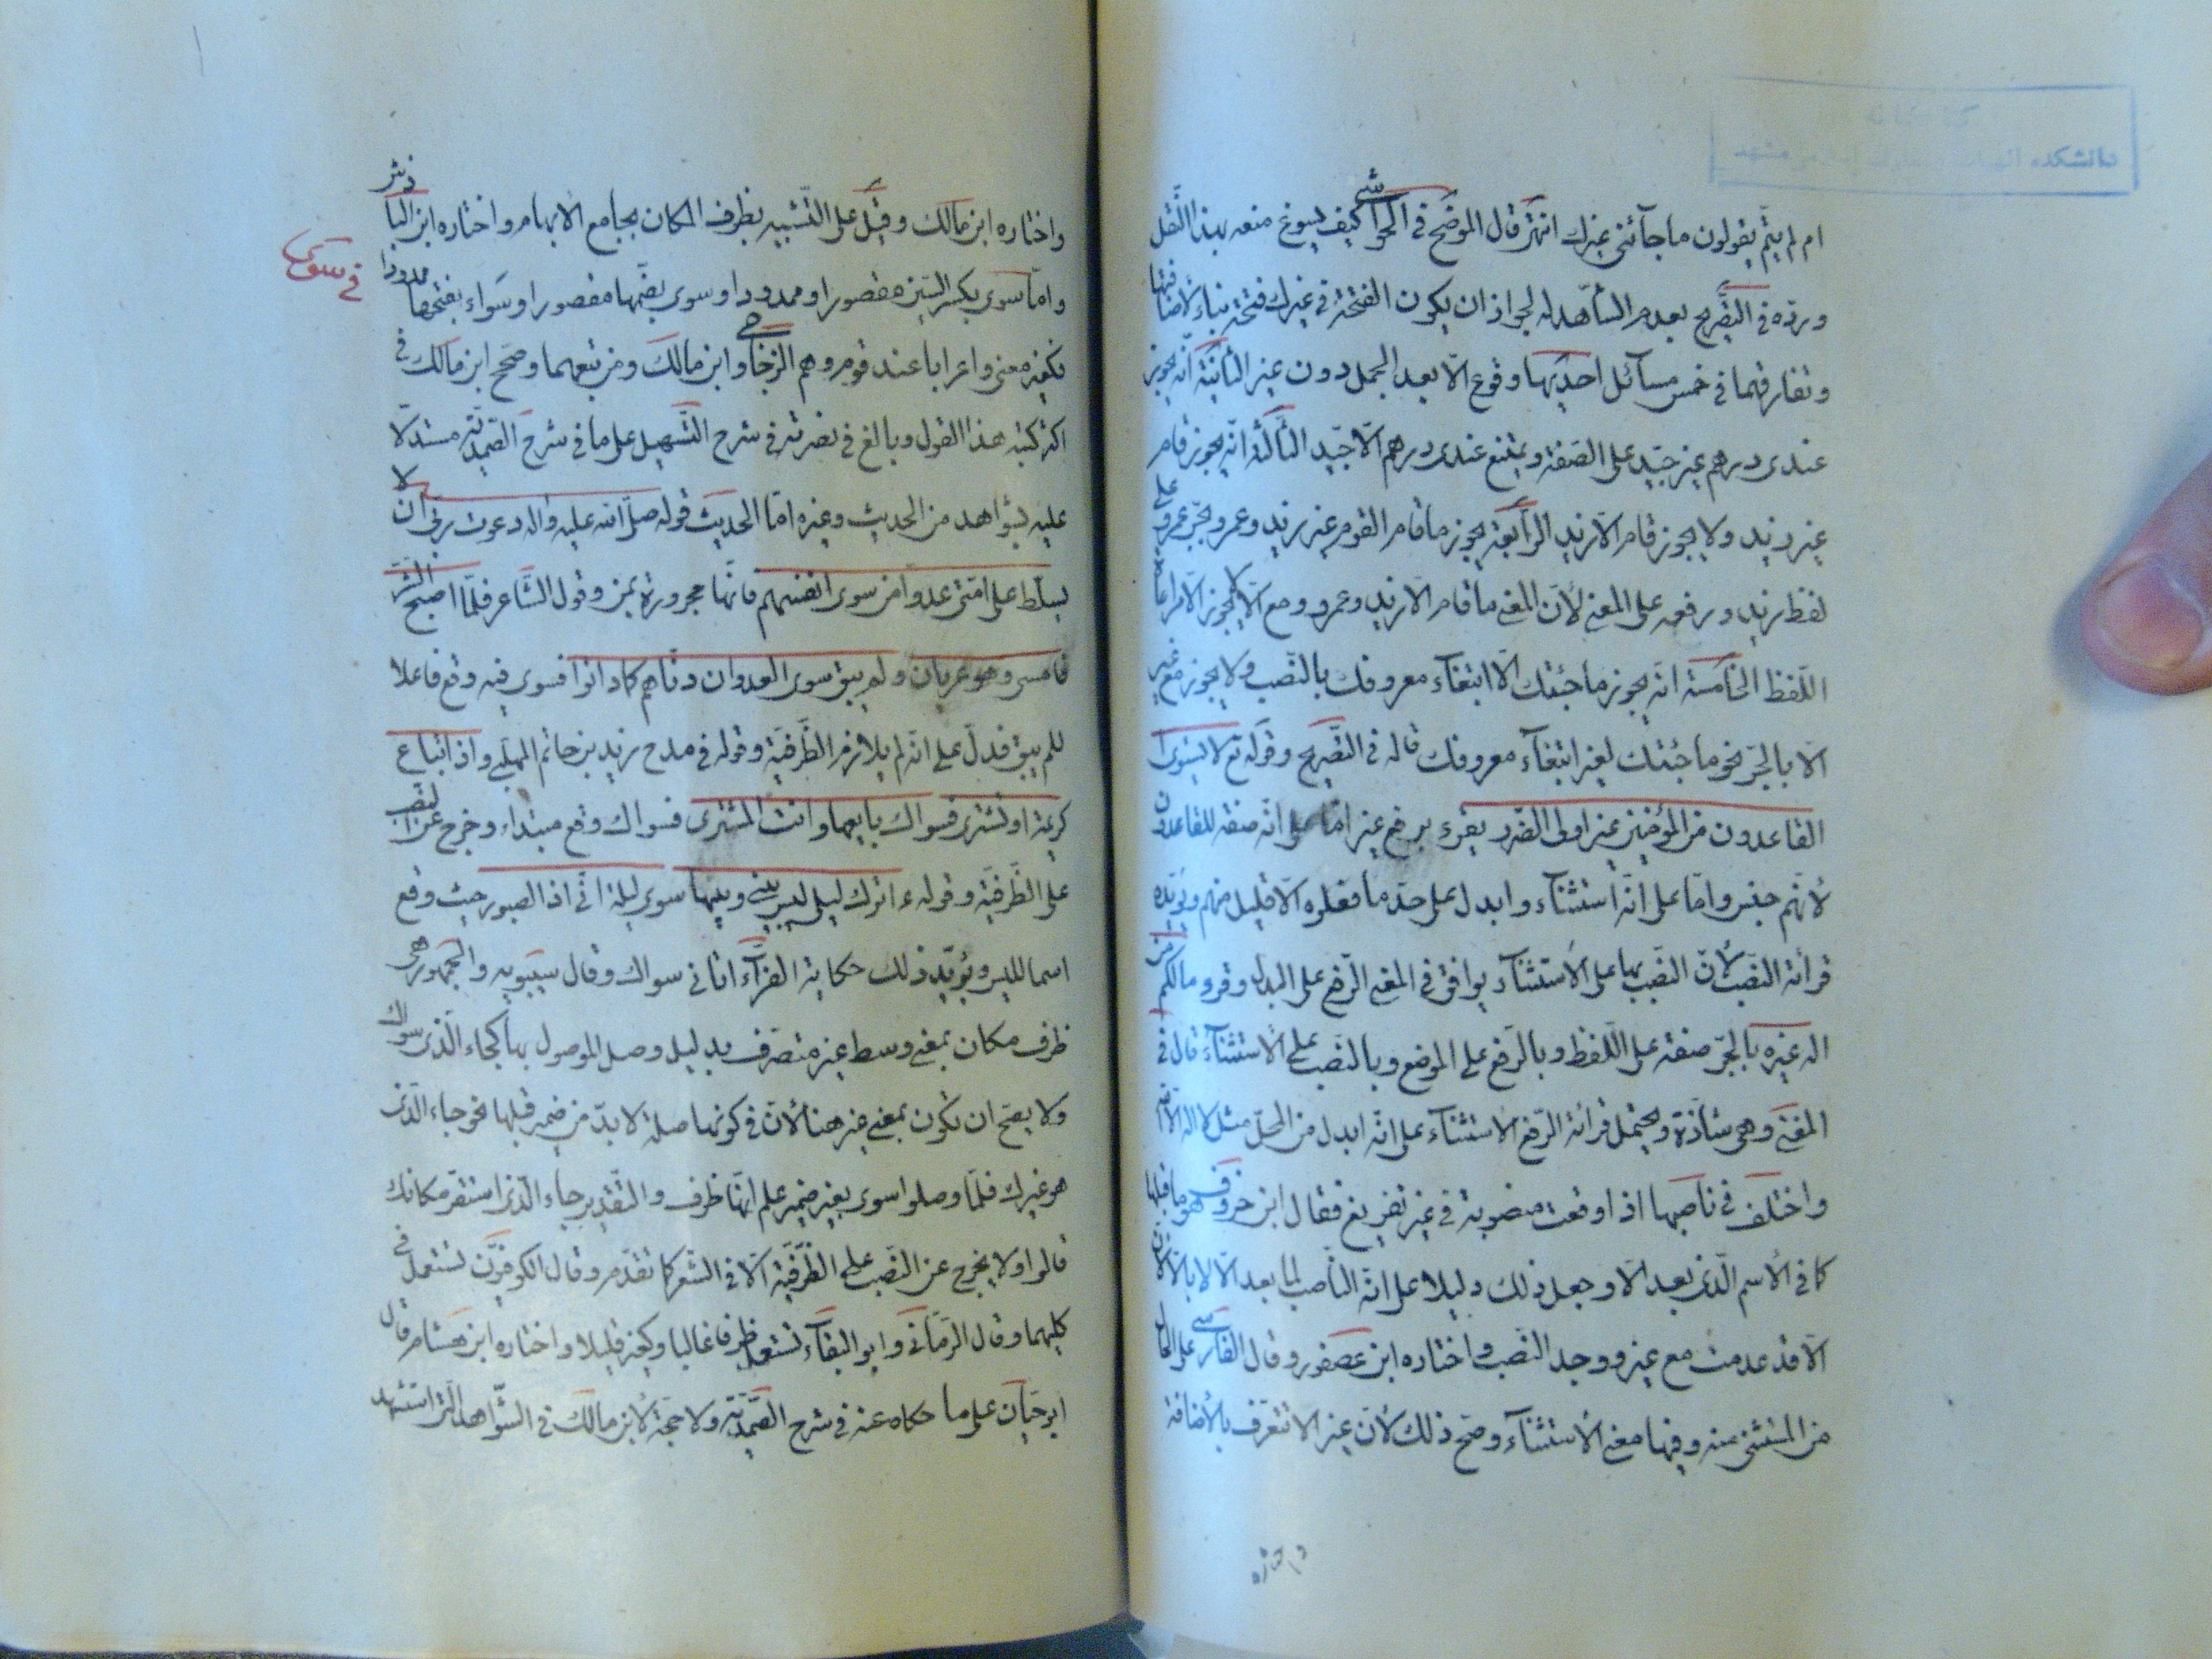 ام لم يتم يقولون ما جآئنى غيرك انتهى قال الموضح فى الحواشى كيف يسوغ منعه بهذا النقل
وردّه فى التّصريح بعدم الشّاهد له لجواز ان يكون الفتحة فى غيرك فتحة بناء لأضافتها
وتفارقهما فى خمس مسآئل احديها وقوع الّا بعد الجمل دون غير الثانية انّه يجوز
عندى درهم غير جيّد على الصّفة ويمتنع عندى درهم الّا جيّد الثالثة انّه يجوز قام
غير زيد ولا يجوز قام الّا زيد الرابعة يجوز ما قام القوم غير زيد وعمرو بجرّ عمرو على
لفظ زيد ورفعه على المعنى لأنّ المعنى ما قام الّا زيد وعمرو ومع الّا لا يجوز الّا مراعاة
اللّفظ الخامسة انّه يجوز ما جئتك الّا ابتغآء معروفك بالنّصب ولا يجوز مع غير
الّا بالجرّ نحو ما جئتك لغير ابتغآء معروفك قاله فى التّصريح وقوله تع لا يستوى
القاعدون من المؤمنين غير اولى الضّرر يقرء برفع غير امّا على انّه صفة للقاعدون
لأنّهم جنس وامّا على انّه استثنآء وابدل على حدّ ما فعلوه الّا قليل منهم ويؤيّده
قرائة النّصب لأنّ النّصب بها على الأستثنآء يوافق فى المعنى الرّفع على البدل وقرء ما لكم من
اله غيره بالجرّ صفة على اللّفظ وبالرّفع على الموضع وبالنّصب على الأستثنآء قال فى
المغنى وهى شاذّة ويحتمل قرائة الرّفع الأستثناء على انّه ابدل من المحلّ مثل لا اله الّا الله
واختلف فى ناصبها اذا وقعت منصوبة فى غير تفريغ فقال ابن خروف هو ما قبلها
كما فى الأسم الّذى بعد الّا وجعل ذلك دليلا على انّ النّاصب لما بعد الّا لا بالّا لأن
الّا قد عدمت مع غير ووجد النّصب واختاره ابن عصفور وقال الفارسى على الحال
من المستثنى منه وفيها معنى الأستثنآء وصحّ ذلك لأنّ غير لا تتعرّف بالأضافة
واختاره
واختاره ابن مالك وقيل على التّشبيه بظرف المكان بجامع الأبهام واختاره ابن الباذش
وامّا سوى بكسر السّين مقصورا وممدودا وسوى بضمّها مقصورا وسواء بفتحها ممدودا
فى سوى
فكغير معنى واعرابا عند قوم وهم الزّجاجى وابن مالك ومن تبعهما وصحّح ابن مالك فى
اكثر كتبه هذا القول وبالغ فى نصرته فى شرح التّسهيل على ما فى شرح الصّمديّة مستدلّا
عليه بشواهد من الحديث وغيره امّا الحديث قوله صلّى الله عليه واله دعوت ربّى ان لا
يسلّط على امّتى عدوّا من سوى انفسهم فانّها مجرورة بمن وقول الشّاعر فلمّا اصبح الشّرّ
فامسى وهو عريان ولم يبق سوى العدوان دنّاهم كما دانوا فسوى فيه وقع فاعلا
للم يبق فدلّ على انّه لم يلازم الظّرفيّة وقوله فى مدح يزيد بن حاتم المهلّبى واذا تباع
كريمة او تشترى فسواك بايعها وانت المشترى فسواك وقع مبتداء وخرج عن النّصب
على الظّرفيّة وقوله ء اترك ليلى ليس بينى وبينها سوى ليلة انّى اذا لصبور حيث وقع
اسما لليس ويؤيّد ذلك حكاية الفرّآء اتانى سواك وقال سيبويه والجمهور هى
ظرف مكان بمعنى وسط غير متصرّف بدليل وصل الموصول بها كجاء الّذى سواك
ولا يصحّ ان تكون بمعنى غير هنا لأنّ فى كونها صلة لا بدّ من ضمير قبلها نحو جاء الّذى
هو غيرك فلمّا وصلوا سوى بغير ضمير علم انّها ظرف والتّقدير جاء الّذى استقرّ مكانك
قالوا ولا يخرج عن النّصب على الظّرفيّة الّا فى الشّعر كما تقدّم وقال الكوفيّون تستعمل فى
كليهما وقال الرّمّانى وابو البقآء تستعمل ظرفا غالبا وكغير قليلا واختاره ابن هشام قال
ابو حيّان على ما حكاه عنه فى شرح الصّمديّة ولا حجّة لأبن مالك فى الشّواهد الّتى استشهد